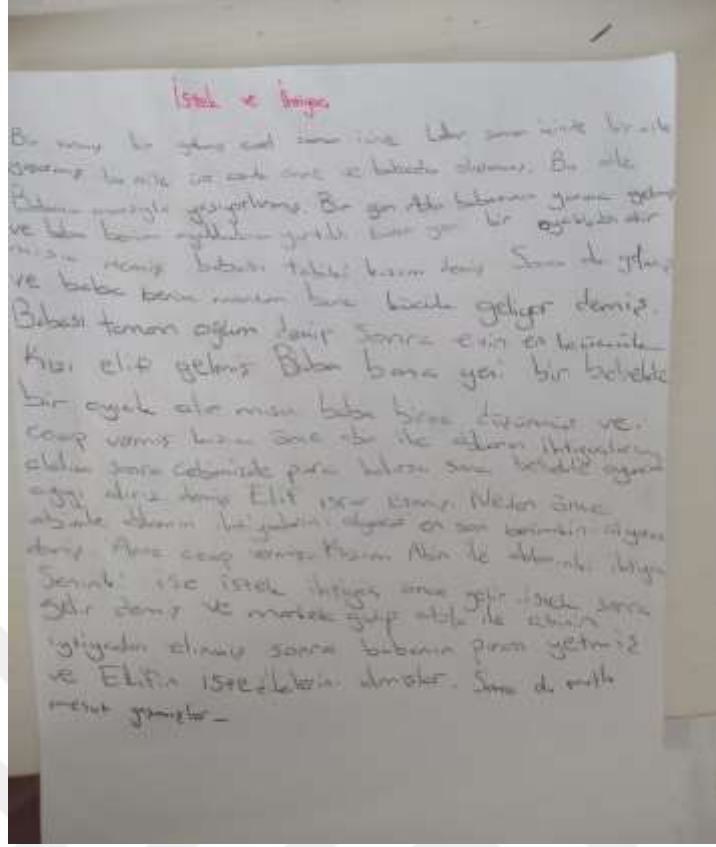 İstek ve İhtiyaç
Bir varmış bir yokmuş evvel zaman içinde kalbur zaman içinde bir aile
yaşarmış bu aile üç çocuk anne ve babadan oluşurmuş. Bu aile
Babanın maaşıyla Bir gün Abla babasının yanına gelmiş
ve baba benim ayakkabım yırtıldı bana yeni bir ayakkabı alır
mısın demiş babası tabiki kızım demiş Sonra da gelmiş
ve baba benim montum bana küçük geliyor demiş.
Babası tamam oğlum demiş Sonra evin en küçük
Kızı elif gelmiş Baba bana yeni bir bebekle
bir oyuncak alır mısın baba biraz düşünmüş ve
cevap vermiş kızım önce abin ile ablanın ihtiyaçlarını
alalım sonra cebimizde para kalırsa sana bebekle
alırız demiş Elif ısrar etmiş. Neden önce
abimle ablamın en son benimkini
demiş. Anne cevap vermiş. Kızım Abin ile ablanınki ihtiyaç
Seninki ise istek ihtiyaç önce gelir istek sonra
gelir demiş ve markete gidip abla ile abinin
sonra babanın parası yetmiş
ve Elifin almışlar. Sonra da mutlu
mesut